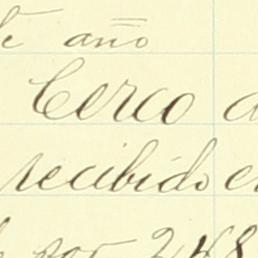 año
Cerco
recibido
por 248